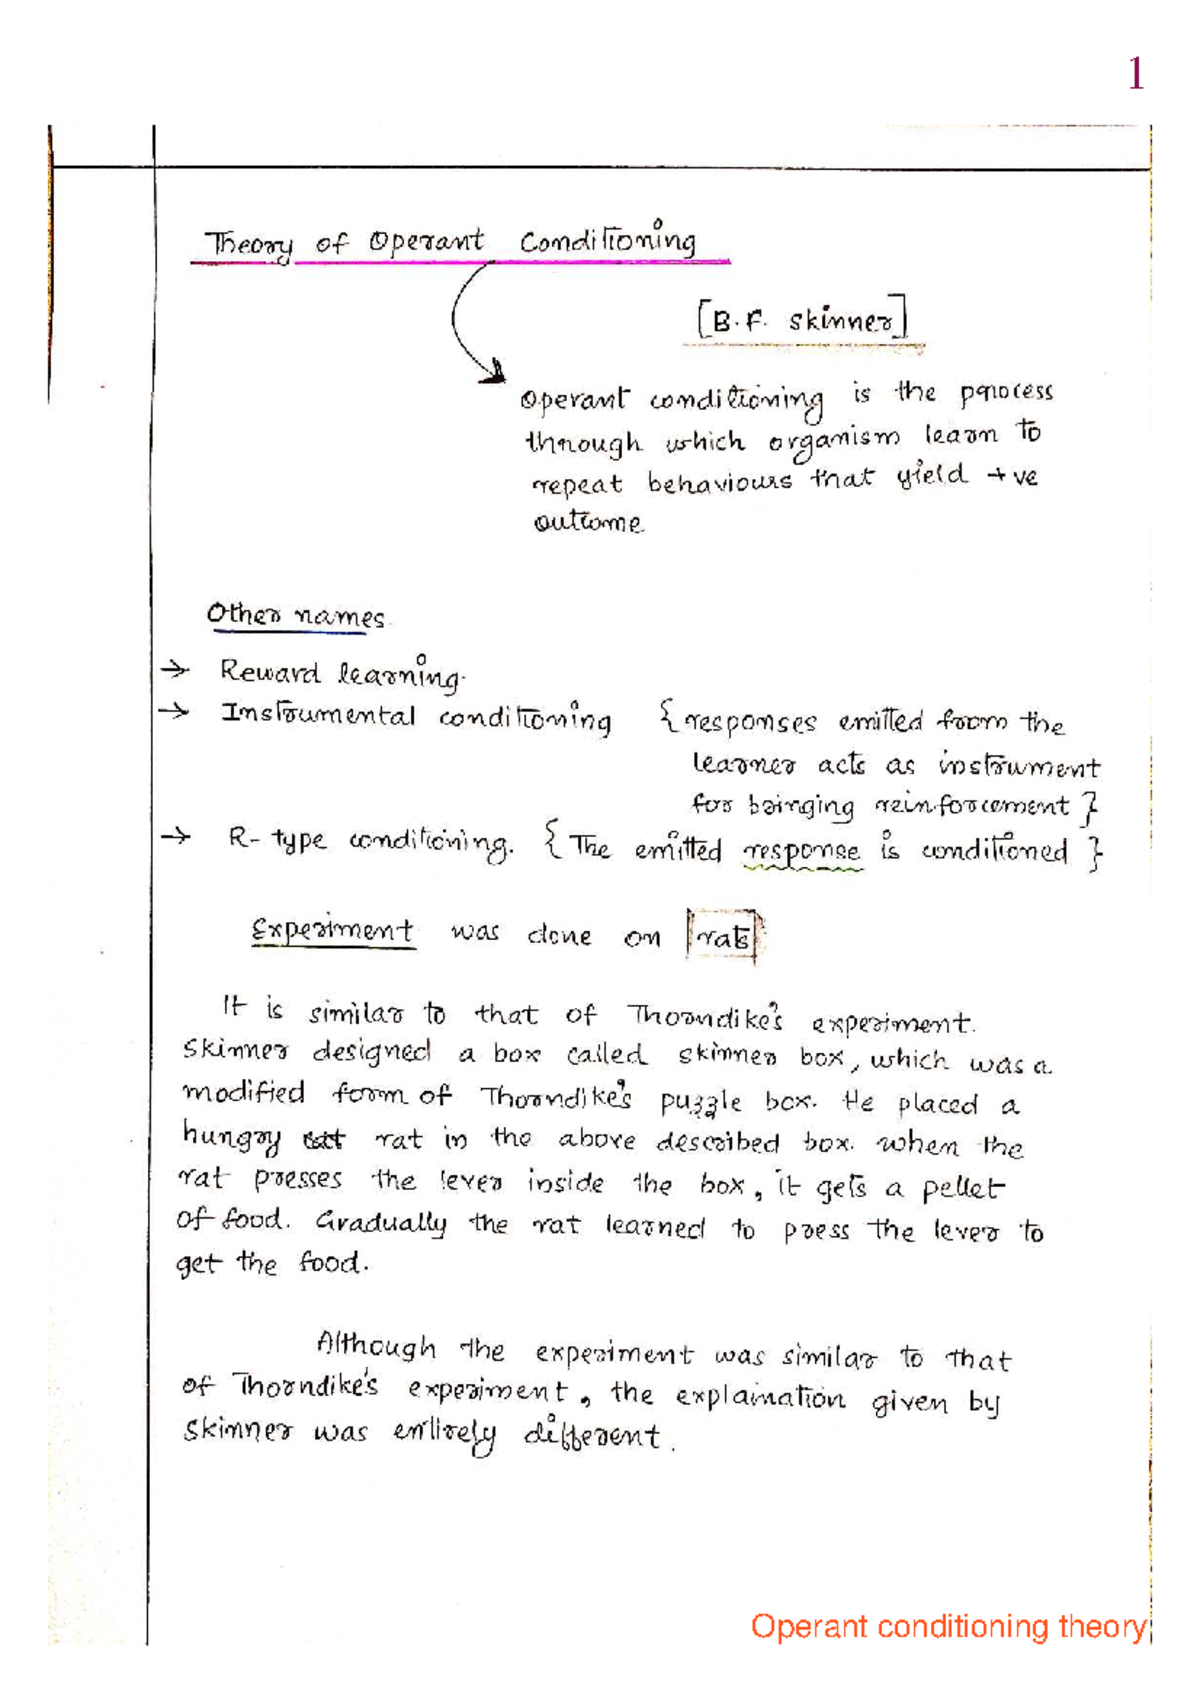 1
Theory of Operant Conditioning
[B.F. Skinner]
Operant conditioning is the process
through which organism learn to
repeat behaviours that yield +ve
outcome
Other names.
→ Reward learning.
→ Instrumental conditioning { responses emitted from the
learner acts as instrument
for bringing reinforcement }
→ R- type conditioning. { The emitted response is conditioned }
Experiment was done on rats
It is similar to that of Thorndike's experiment.
Skinner designed a box called skinner box, which was a
modified form of Thorndike's puzzle box. He placed a
hungry cat rat in the above described box. When the
rat presses the lever inside the box, it gets a pellet
of food. Gradually the rat learned to press the lever to
get the food.
Although the experiment was similar to that
of Thorndike's experiment, the explaination given by
Skinner was entirely different.
Operant conditioning theory